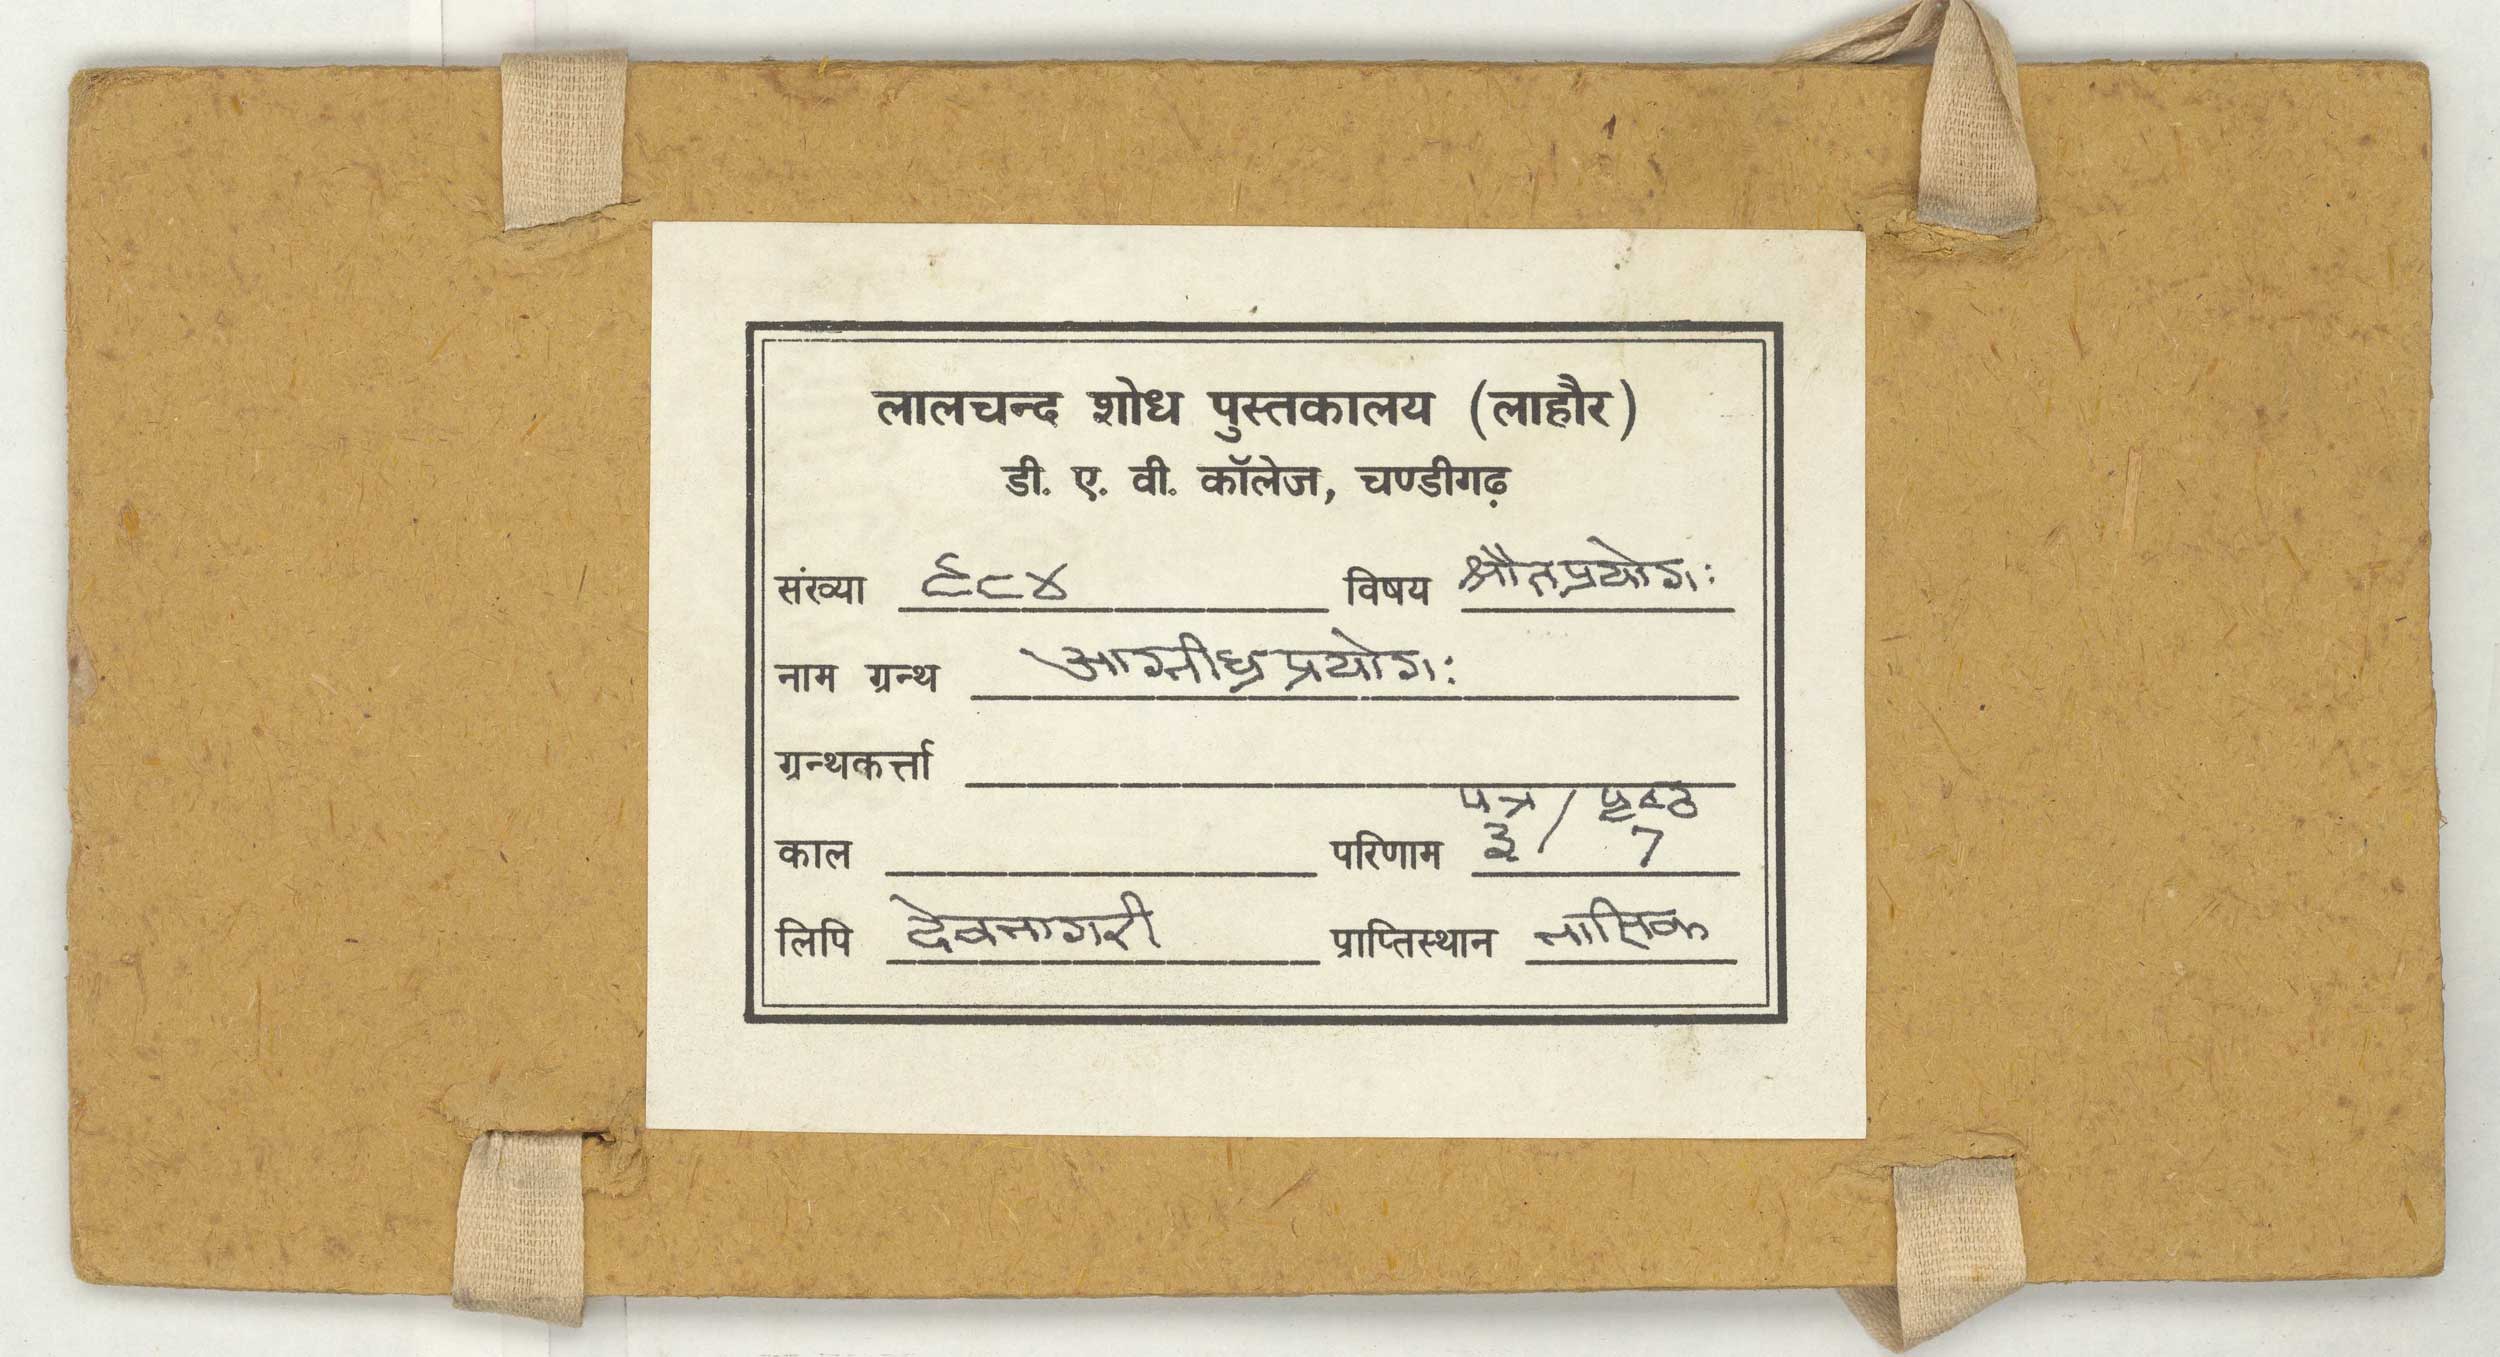 लालचन्द शोध पुस्तकालय (लाहौर)
डी. ए. वी. कॉलेज, चण्डीगढ़
संख्या ६८४ विषय श्रौतप्रयोगः
नाम ग्रन्थ आग्नीध्रप्रयोगः
ग्रन्थकर्त्ता
पत्र / पृष्ठ
काल परिणाम ३ / 7
लिपि देवनागरी प्राप्तिस्थान नासिक